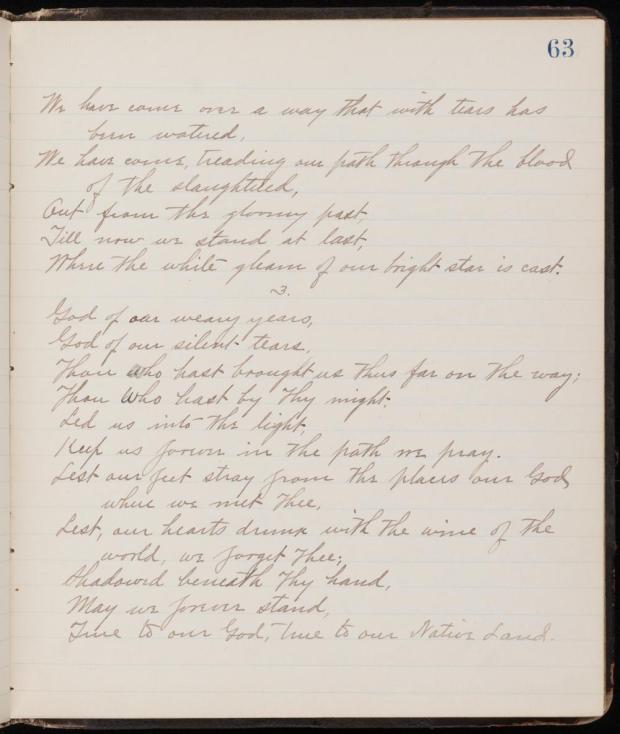 63
We have come over a way that with tears has
been watered,
We have come, treading our path through the blood
of the slaughtered,
Out from the gloomy past,
Till now we stand at last,
Where the white gleam of our bright star is cast.
3.
God of our weary years,
God of our silent tears,
Thou who hast brought us thus far on the way;
Thou Who hast by Thy might,
Led us into the light,
Keep us forever in the path we pray.
Lest our feet stray from the places our God,
where we met Thee,
Lest, our hearts drunk with the wine of the
world, we forget Thee;
Shadowed beneath Thy hand,
May we forever stand,
True to our God, True to our Native Land.